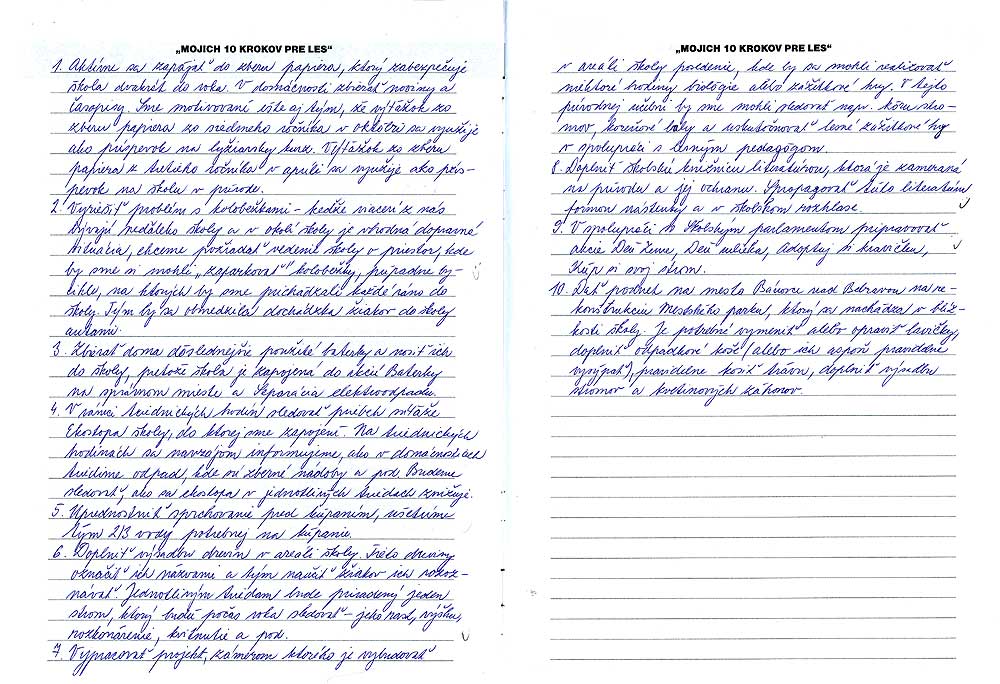 „MOJICH 10 KROKOV PRE LES“
1. Aktívne sa zapájať do zberu papiera, ktorý zabezpečuje
škola dvakrát do roka. V domácnosti zbierať noviny a
časopisy. Sme motivovaní ešte aj tým, že výťažok zo
zberu papiera zo siedmeho ročníka v októbri sa využije
ako príspevok na lyžiarsky kurz. Výťažok zo zberu
papiera z tretieho ročníka v apríli sa využije ako prís-
pevok na školu v prírode.
2. Vyriešiť problém s kolobežkami - keďže viacerí z nás
bývajú neďaleko školy a v okolí školy je vhodná dopravná
situácia, chceme požiadať vedenie školy o priestor, kde
by sme si mohli „zaparkovať“ kolobežky, prípadne by-
cikle, na ktorých by sme prichádzali každé ráno do
školy. Tým by sa obmedzila dochádzka žiakov do školy
autami.
3. Zbierať doma dôslednejšie použité baterky a nosiť ich
do školy, pretože škola je zapojená do akcií Baterky
na správnom mieste a Separácia elektroodpadu.
4. V rámci triednických hodín sledovať priebeh súťaže
Ekostopa školy, do ktorej sme zapojení. Na triednických
hodinách sa navzájom informujeme, ako v domácnostiach
triedime odpad, kde sú zberné nádoby a pod. Budeme
sledovať, ako sa ekostopa v jednotlivých triedach znižuje.
5. Uprednostniť sprchovanie pred kúpaním, ušetríme
tým 2/3 vody potrebnej na kúpanie.
6. Doplniť výsadbu drevín v areáli školy. Tieto dreviny
označiť ich názvami a tým naučiť žiakov ich rozoz-
návať. Jednotlivým triedam bude priradený jeden
strom, ktorý budú počas roka sledovať - jeho rast, výšku,
rozkonárenie, kvitnutie a pod.
7. Vypracovať projekt, zámerom ktorého je vybudovať
„MOJICH 10 KROKOV PRE LES“
v areáli školy posedenie, kde by sa mohli realizovať
niektoré hodiny biológie alebo zážitkové hry. V tejto
prírodnej učebni by sme mohli sledovať napr. kôru stro-
mov, koreňové baly a uskutočňovať lesné zážitkové hry
v spolupráci s Lesným pedagógom.
8. Doplniť školskú knižnicu literatúrou, ktorá je zameraná
na prírodu a jej ochranu. Spropagovať túto literatúru
formou nástenky a v školskom rozhlase.
9. V spolupráci so Školským parlamentom pripravovať
akcie Deň Zeme, Deň mlieka, Adoptuj si kravičku,
Kúp si svoj strom.
10. Dať podnet na mesto Bánovce nad Bebravou na re-
konštrukciu Mestského parku, ktorý sa nachádza v blíz-
kosti školy. Je potrebné vymeniť alebo opraviť lavičky,
doplniť odpadkové koše (alebo ich aspoň pravidelne
vysýpať), pravidelne kosiť trávu, doplniť výsadbu
stromov a kvetinových záhonov.